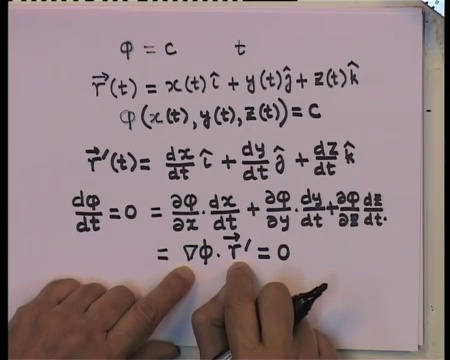 φ = c t
r⃗(t) = x(t)î + y(t)ĵ + z(t)k̂
φ(x(t), y(t), z(t)) = c
r⃗'(t) = dx/dt î + dy/dt ĵ + dz/dt k̂
dφ/dt = 0 = ∂φ/∂x · dx/dt + ∂φ/∂y · dy/dt + ∂φ/∂z dz/dt.
= ∇φ · r⃗' = 0